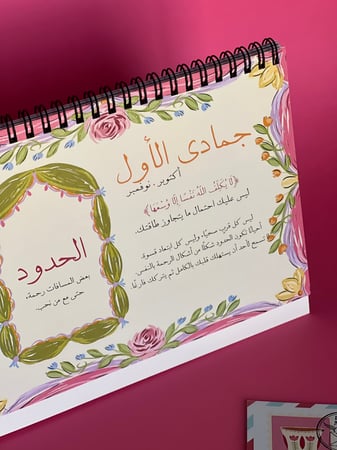 جمادى الأول
أكتوبر. نوفمبر
﴿لَا يُكَلِّفُ اللَّهُ نَفْسًا إِلَّا وُسْعَهَا﴾
ليس عليك احتمال ما يتجاوز طاقتك.
ليس كل قرب سعيًا، وليس كل ابتعاد قسوة.
أحيانًا تكون الحدود شكلًا من أشكال الرحمة بالنفس
تسمح لأحد أن يستهلك قلبك بالكامل ثم يتركك فارغًا.
الحدود
بعض المسافات رحمة،
حتى مع من نحب.